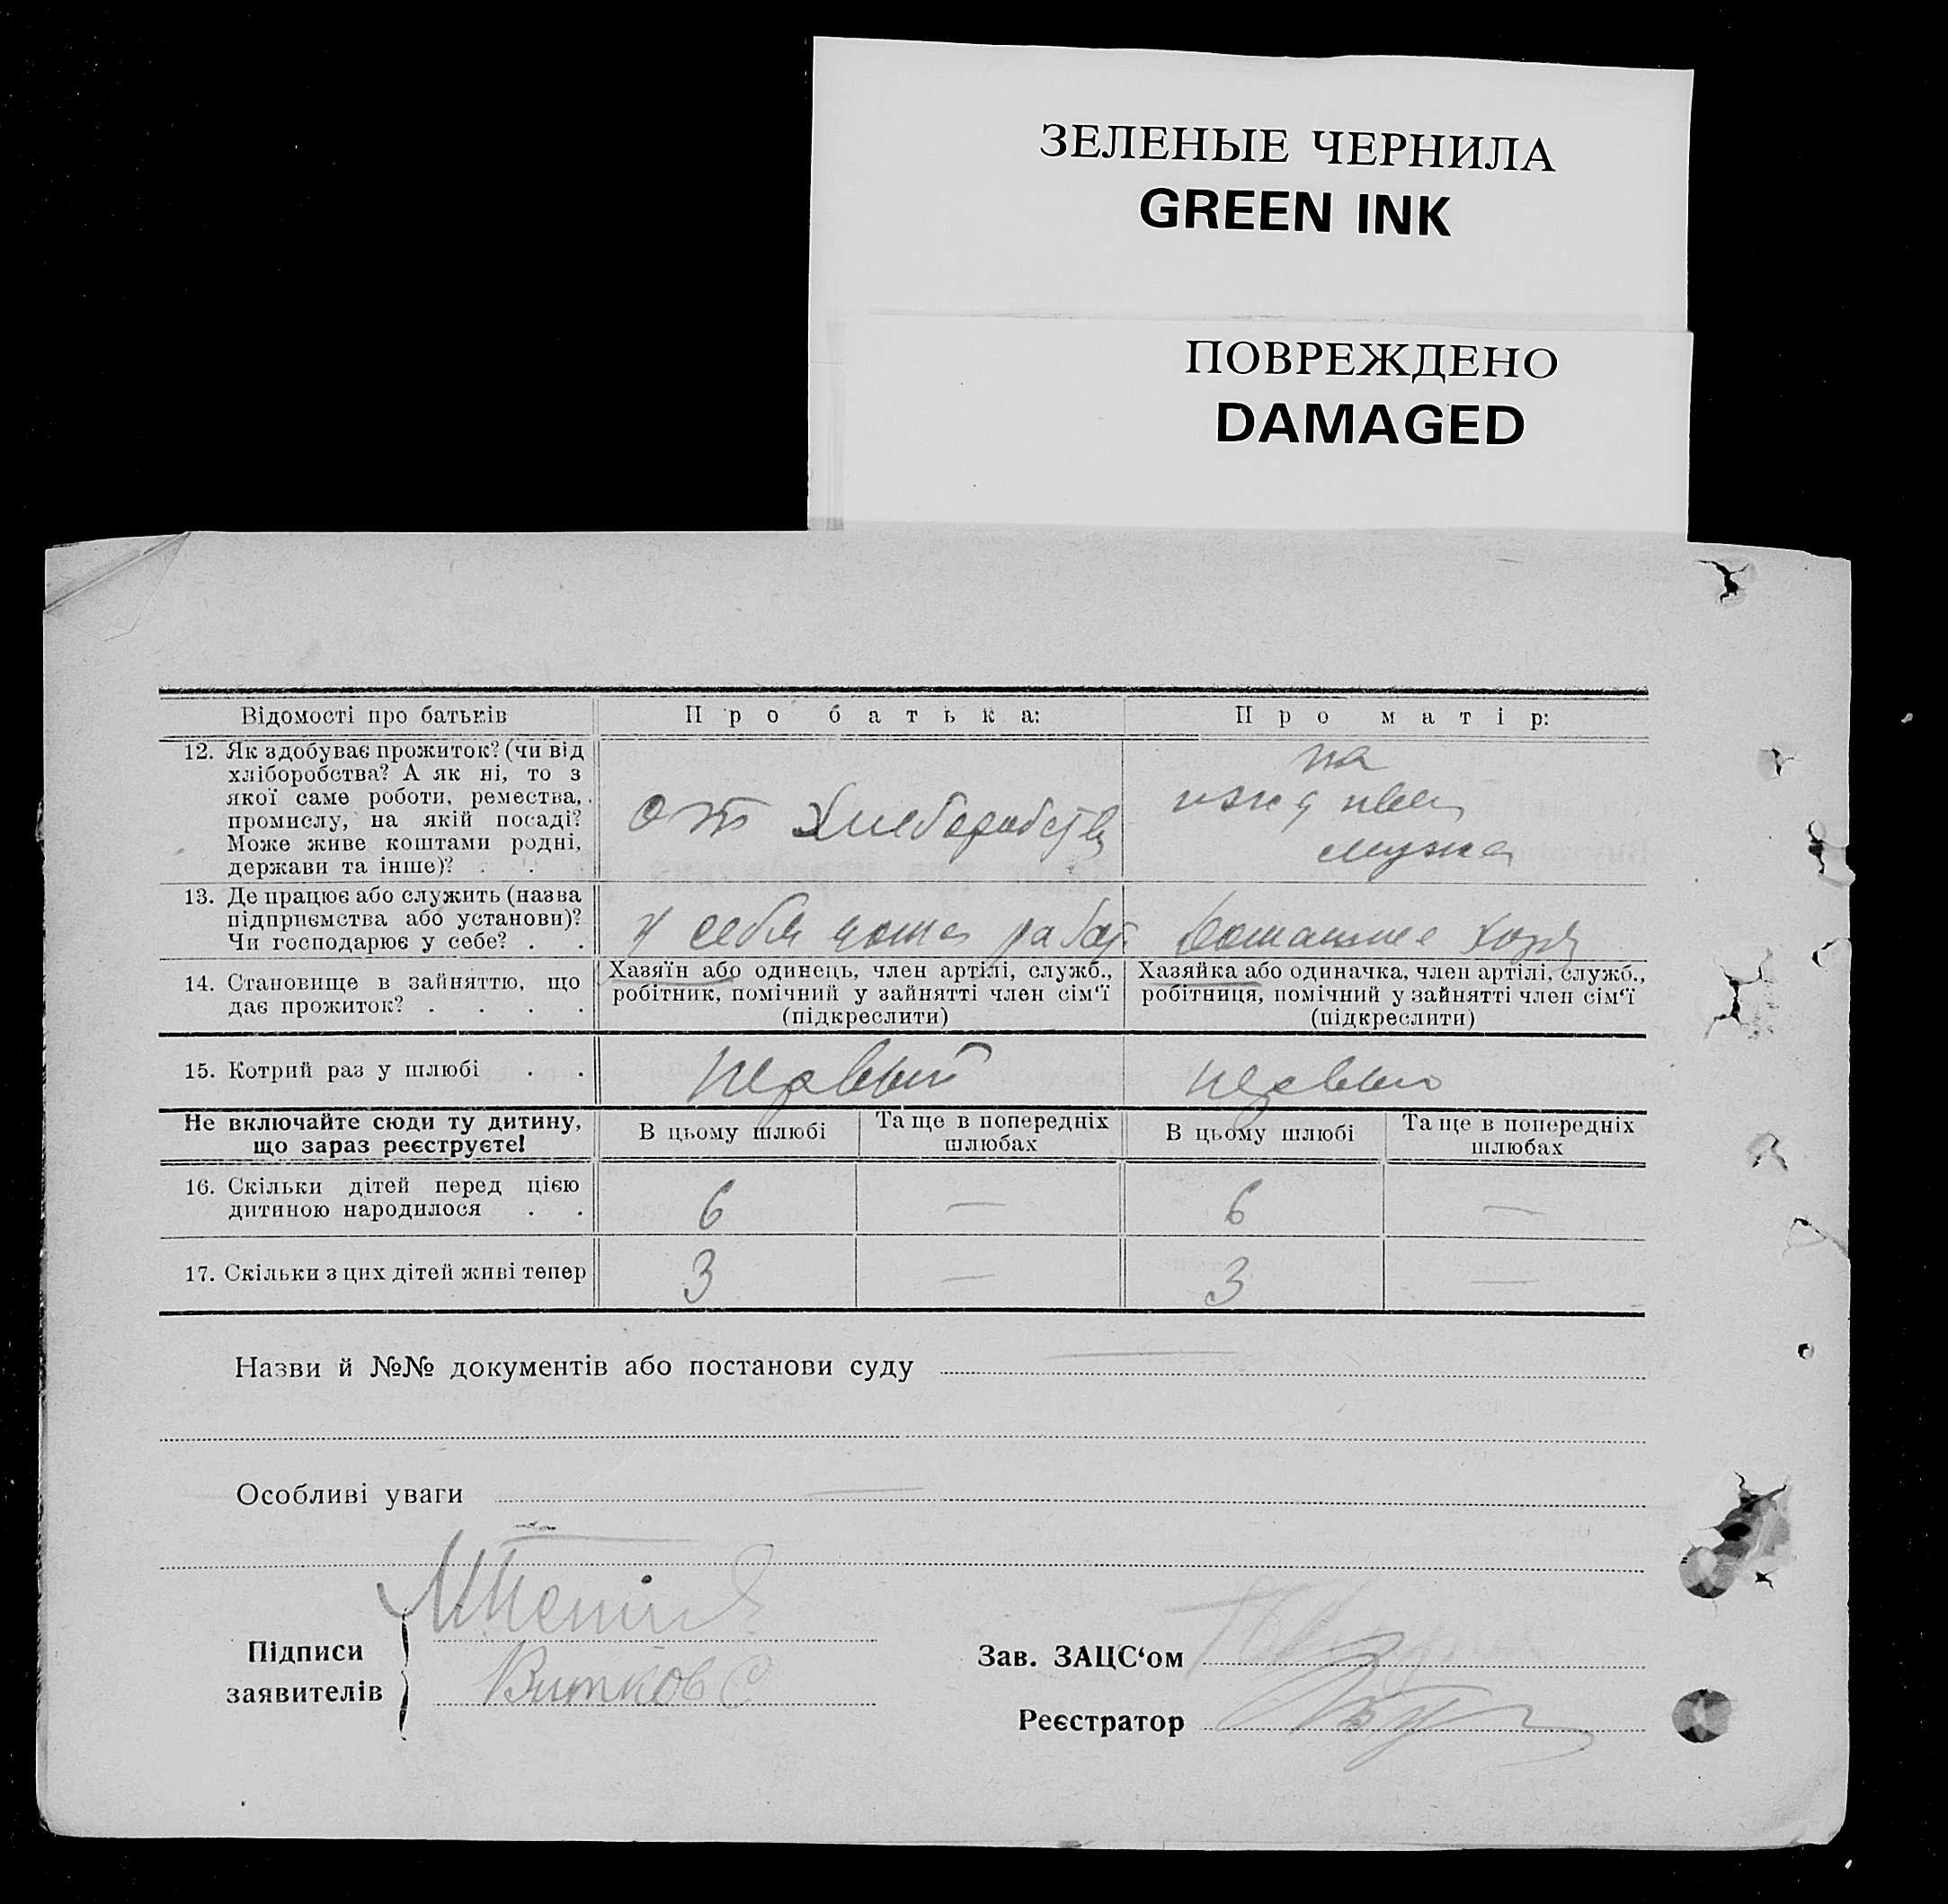 ЗЕЛЕНЫЕ ЧЕРНИЛА
GREEN INK
ПОВРЕЖДЕНО
DAMAGED
Відомості про батьків
Про батька:
Про матір:
12. Як здобуває прожиток? (чи від
хліборобства? А як ні, то з
якої саме роботи, ремества,
промислу, на якій посаді?
Може живе коштами родні,
держави та інше)? . .
от
на
мужа
13. Де працює або служить (назва
підприємства або установи)?
Чи господарює у себе? . .
у себя дома работ.
домашнее хозя
14. Становище в зайняттю, що
дає прожиток? . . . .
Хазяїн або одинець, член артілі, служб.,
робітник, помічний у зайнятті член сім'ї
(підкреслити)
Хазяйка або одиначка, член артілі, служб.,
робітниця, помічний у зайнятті член сім'ї
(підкреслити)
15. Котрий раз у шлюбі . .
первый
первый
Не включайте сюди ту дитину,
що зараз реєструєте!
В цьому шлюбі
Та ще в попередніх
шлюбах
В цьому шлюбі
Та ще в попередніх
шлюбах
16. Скільки дітей перед цією
дитиною народилося . .
6
—
6
—
17. Скільки з цих дітей живі тепер
3
—
3
—
Назви й №№ документів або постанови суду
Особливі уваги
Підписи
заявителів
Витков С
Зав. ЗАЦС'ом
Реєстратор